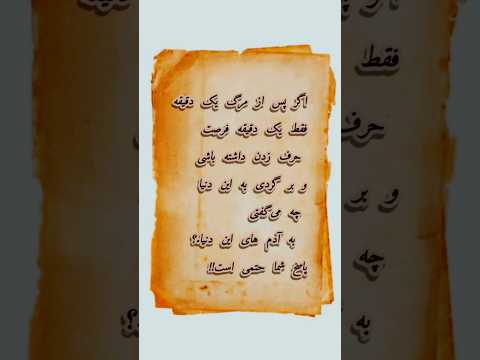 اگر پس از مرگ یک دقیقه
فقط یک دقیقه فرصت
حرف زدن داشته باشی
و بر گردی به این دنیا
چه می‌گفتی
به آدم های این دنیا؟
پاسخ شما حتمی است!!